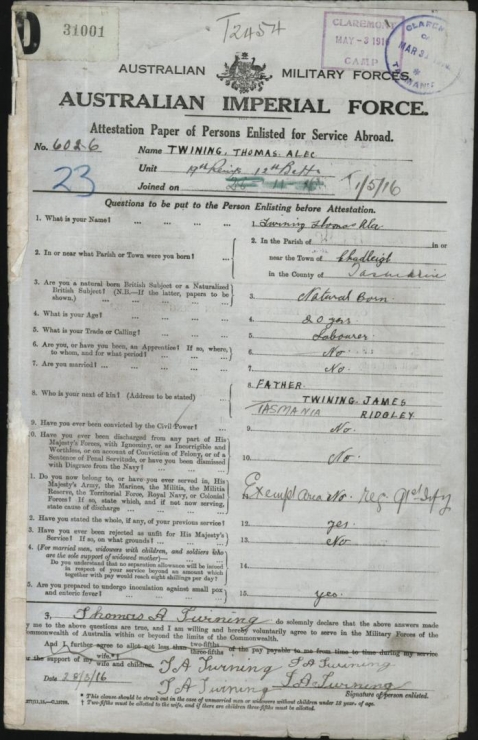 D 31001
T2454
CLAREMONT
MAY - 3 191
CAMP
CLAREM
MAR 3
TASMANIA
AUSTRALIAN MILITARY FORCES.
AUSTRALIAN IMPERIAL FORCE.
Attestation Paper of Persons Enlisted for Service Abroad.
No. 6026 Name TWINING, THOMAS ALEC
Unit 19th Reinf 12th Battn
Joined on 1/5/16
23
Questions to be put to the Person Enlisting before Attestation.
1. What is your Name? ... ... ... 1. Twining Thomas Alec
2. In or near what Parish or Town were you born? ... 2. In the Parish of in or
near the Town of Chudleigh
in the County of Tasmania
3. Are you a natural born British Subject or a Naturalised
British Subject? (N.B.—If the latter, papers to be
shown.) 3. Natural Born
4. What is your Age? 4. 20 yrs
5. What is your Trade or Calling? 5. Labourer
6. Are you, or have you been, an Apprentice? If so, where,
to whom, and for what period? 6. No
7. Are you married? 7. No.
8. Who is your next of kin? (Address to be stated) 8. FATHER
TWINING JAMES
TASMANIA RIDGLEY
9. Have you ever been convicted by the Civil Power? 9. No.
0. Have you ever been discharged from any part of His
Majesty's Forces, with Ignominy, or as Incorrigible and
Worthless, or on account of Conviction of Felony, or of a
Sentence of Penal Servitude, or have you been dismissed
with Disgrace from the Navy? 10. No.
1. Do you now belong to, or have you ever served in, His
Majesty's Army, the Marines, the Militia, the Militia
Reserve, the Territorial Force, Royal Navy, or Colonial
Forces? If so, state which, and if not now serving,
state cause of discharge Exempt Area No.
2. Have you stated the whole, if any, of your previous service? 12. yes.
3. Have you ever been rejected as unfit for His Majesty's
Service? If so, on what grounds? 13. No
4. (For married men, widowers with children, and soldiers who
are the sole support of widowed mother)—
Do you understand that no separation allowance will be issued
in respect of your service beyond an amount which
together with pay would reach eight shillings per day? 14.
5. Are you prepared to undergo inoculation against small pox
and enteric fever? 15. yes.
I, Thomas A Twining do solemnly declare that the above answers made
by me to the above questions are true, and I am willing and hereby voluntarily agree to serve in the Military Forces of the
Commonwealth of Australia within or beyond the limits of the Commonwealth.
And I further agree to allot not less than two-fifths three-fifths of the pay payable to me from time to time during my service
for the support of my wife wife and children.
T A Twining T A Twining
Date 28/3/16 T A Twining T. A. Twining
Signature of person enlisted.
* This clause should be struck out in the case of unmarried men or widowers without children under 18 years of age.
† Two-fifths must be allotted to the wife, and if there are children three-fifths must be allotted.